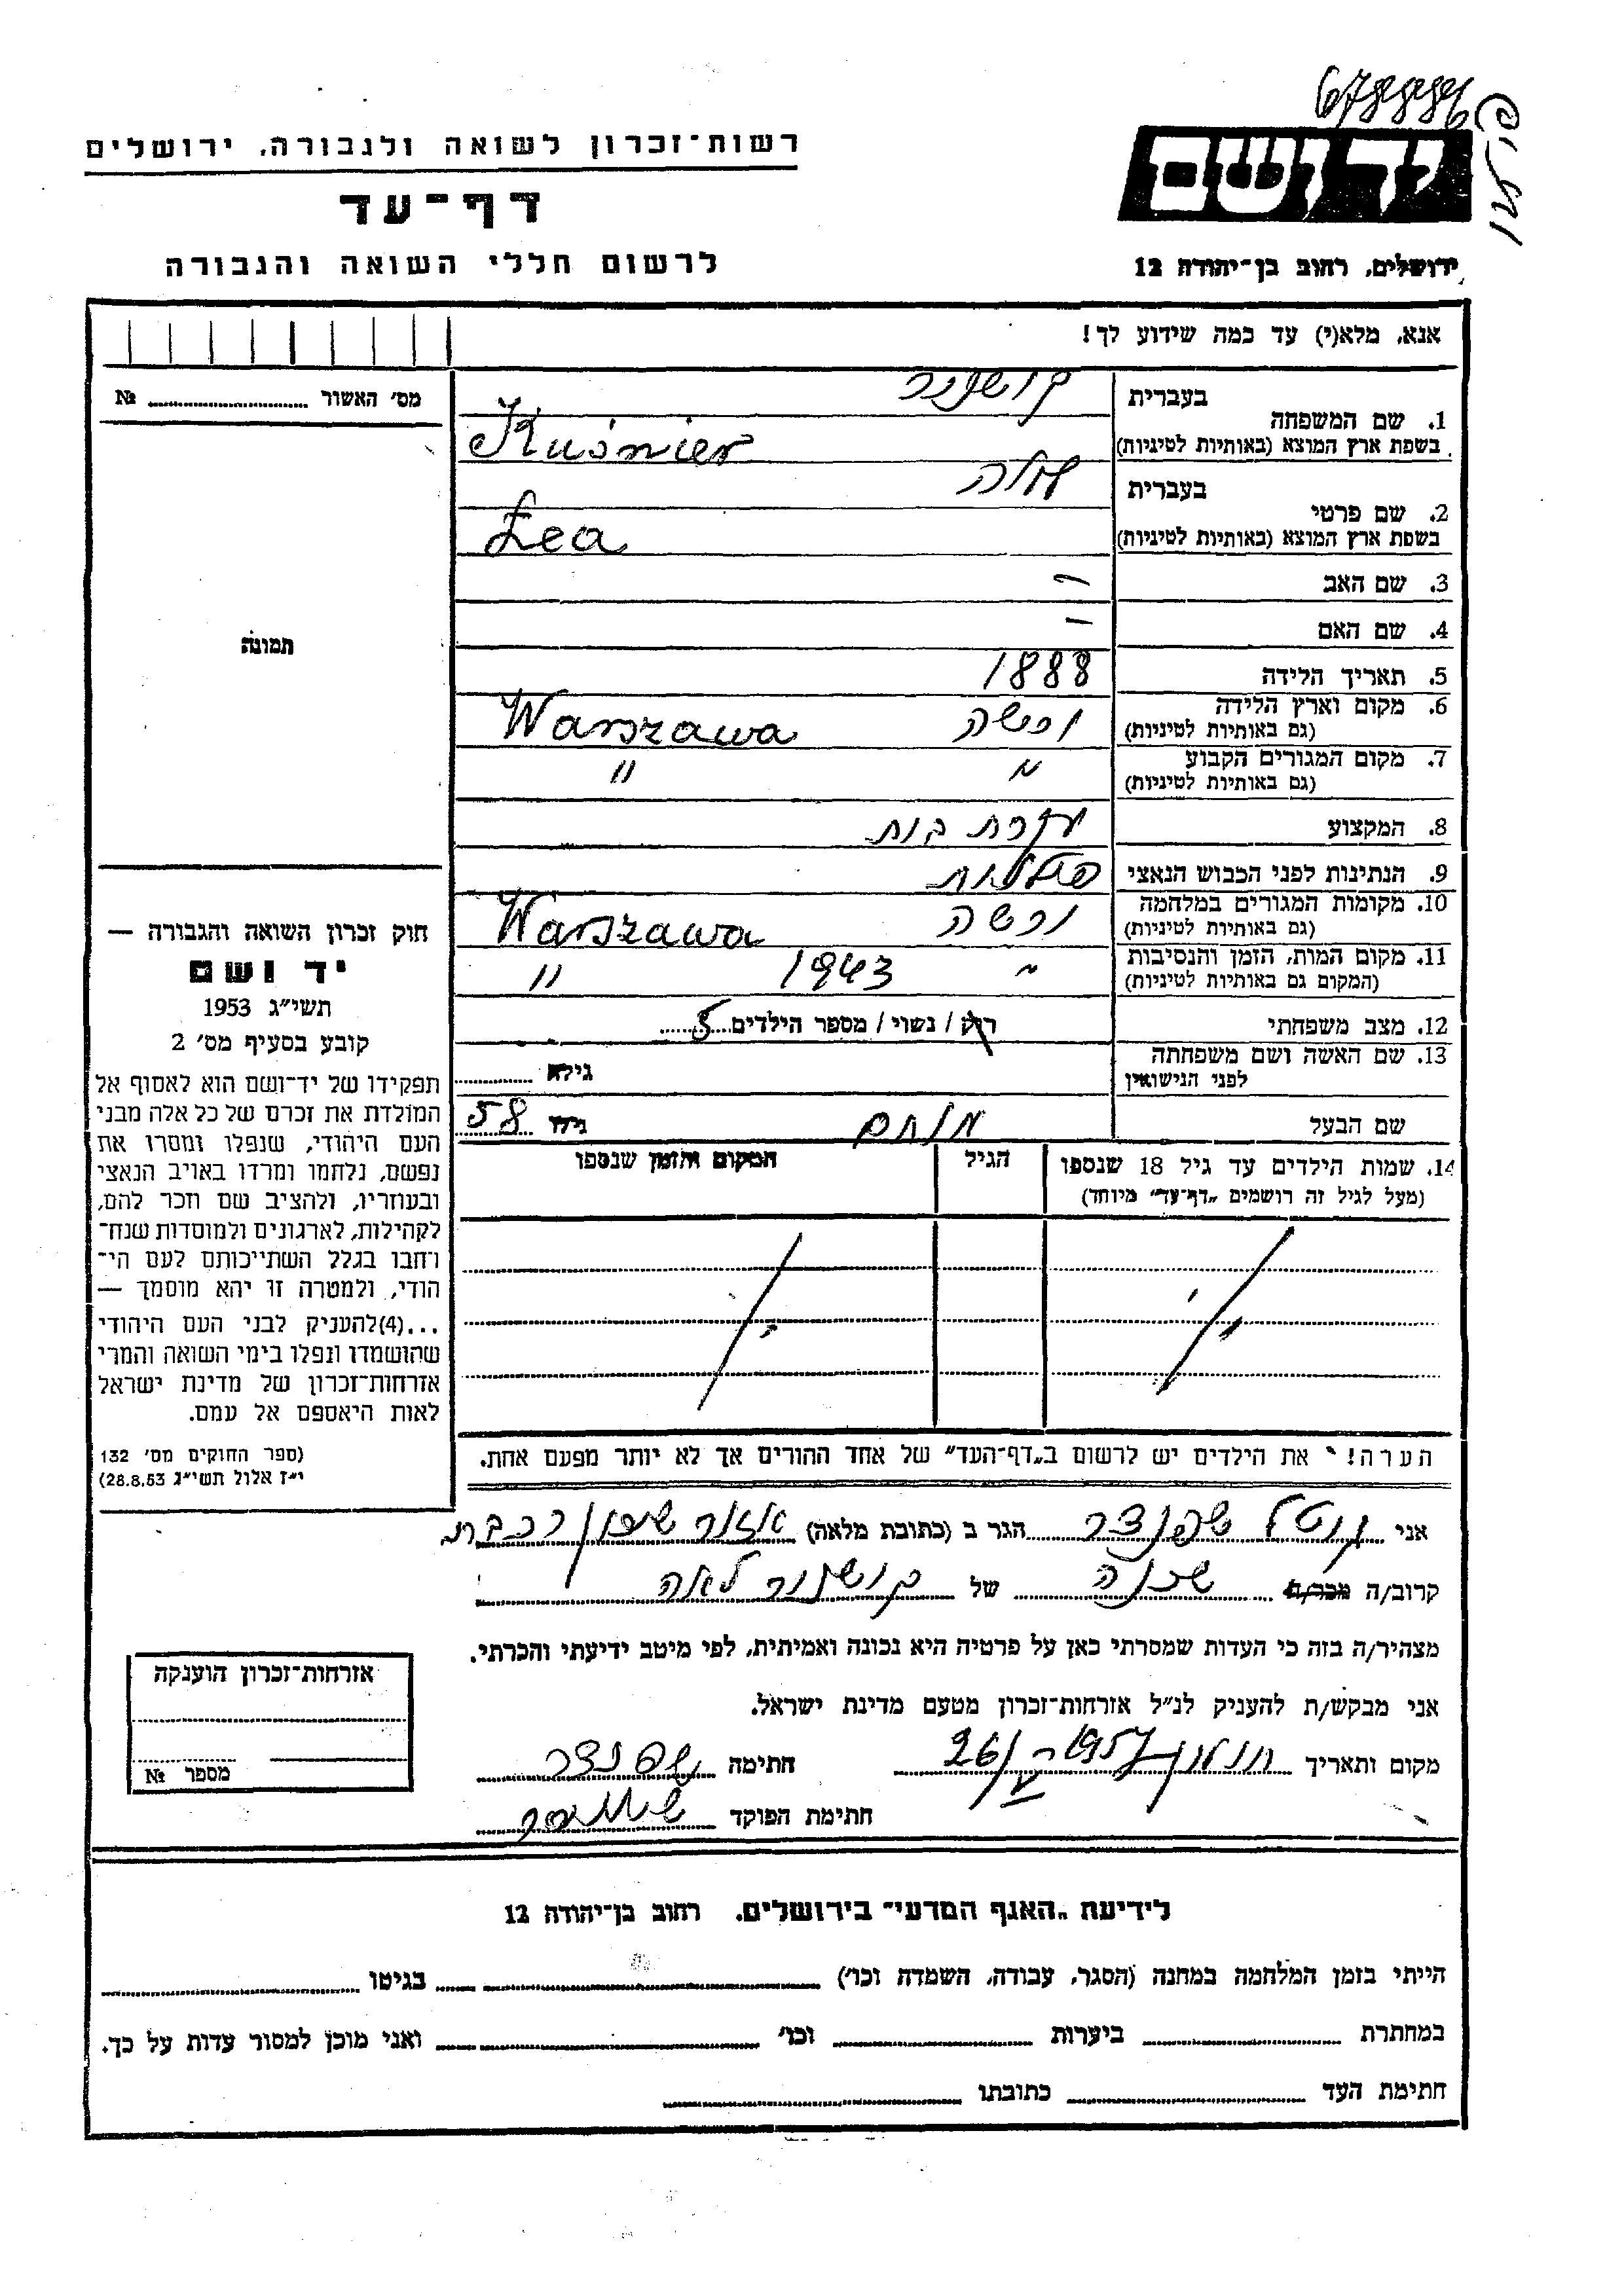 678886
רשות־זכרון לשואה ולגבורה, ירושלים
דף־עד
לרשום חללי השואה והגבורה
יד ושם
ירושלים, רחוב בן־יהודה 12
אנא, מלא(י) עד כמה שידוע לך!
מס׳ האשור № 
1. שם המשפחה
בעברית קושניר
בשפת ארץ המוצא (באותיות לטיניות) Kuśnier
2. שם פרטי
בעברית לאה
בשפת ארץ המוצא (באותיות לטיניות) Lea
3. שם האב –
4. שם האם –
5. תאריך הלידה 1888
6. מקום וארץ הלידה (גם באותיות לטיניות) ורשה Warszawa
7. מקום המגורים הקבוע (גם באותיות לטיניות) " "
8. המקצוע עקרת בית
9. הנתינות לפני הכבוש הנאצי פולנית
10. מקומות המגורים במלחמה (גם באותיות לטיניות) ורשה Warszawa
11. מקום המות, הזמן והנסיבות (המקום גם באותיות לטיניות) " 1943 "
12. מצב משפחתי רוק / נשוי / מספר הילדים 5
13. שם האשה ושם משפחתה לפני הנישואין גילה
שם הבעל מנחם גילו 58
14. שמות הילדים עד גיל 18 שנספו הגיל המקום והזמן שנספו
(מעל לגיל זה רושמים „דף־עד״ מיוחד)
הערה! את הילדים יש לרשום ב„דף־העד״ של אחד ההורים אך לא יותר מפעם אחת.
תמונה
חוק זכרון השואה והגבורה —
יד ושם
תשי״ג 1953
קובע בסעיף מס׳ 2
תפקידו של יד־ושם הוא לאסוף אל
המולדת את זכרם של כל אלה מבני
העם היהודי, שנפלו ומסרו את
נפשם, נלחמו ומרדו באויב הנאצי
ובעוזריו, ולהציב שם וזכר להם,
לקהילות, לארגונים ולמוסדות שנח־
רבו בגלל השתייכותם לעם הי־
הודי, ולמטרה זו יהא מוסמך —
...(4) להעניק לבני העם היהודי
שהושמדו ונפלו בימי השואה והמרי
אזרחות־זכרון של מדינת ישראל
לאות היאספם אל עמם.
(ספר החוקים מס׳ 132
י״ז אלול תשי״ג 28.8.53)
אני שפנצר הגר ב (כתובת מלאה)
קרוב/ה מכר/ה שכנה של קושניר לאה
מצהיר/ה בזה כי העדות שמסרתי כאן על פרטיה היא נכונה ואמיתית, לפי מיטב ידיעתי והכרתי.
אני מבקש/ת להעניק לנ״ל אזרחות־זכרון מטעם מדינת ישראל.
מקום ותאריך חולון 26/V 1957 חתימה שפנצר
חתימת הפוקד
אזרחות־זכרון הוענקה
מספר №
לידיעת „האגף המדעי״ בירושלים, רחוב בן־יהודה 12
הייתי בזמן המלחמה במחנה (הסגר, עבודה, השמדה וכו׳) בגיטו
במחתרת ביערות וכו׳ ואני מוכן למסור עדות על כך.
חתימת העד כתובתו